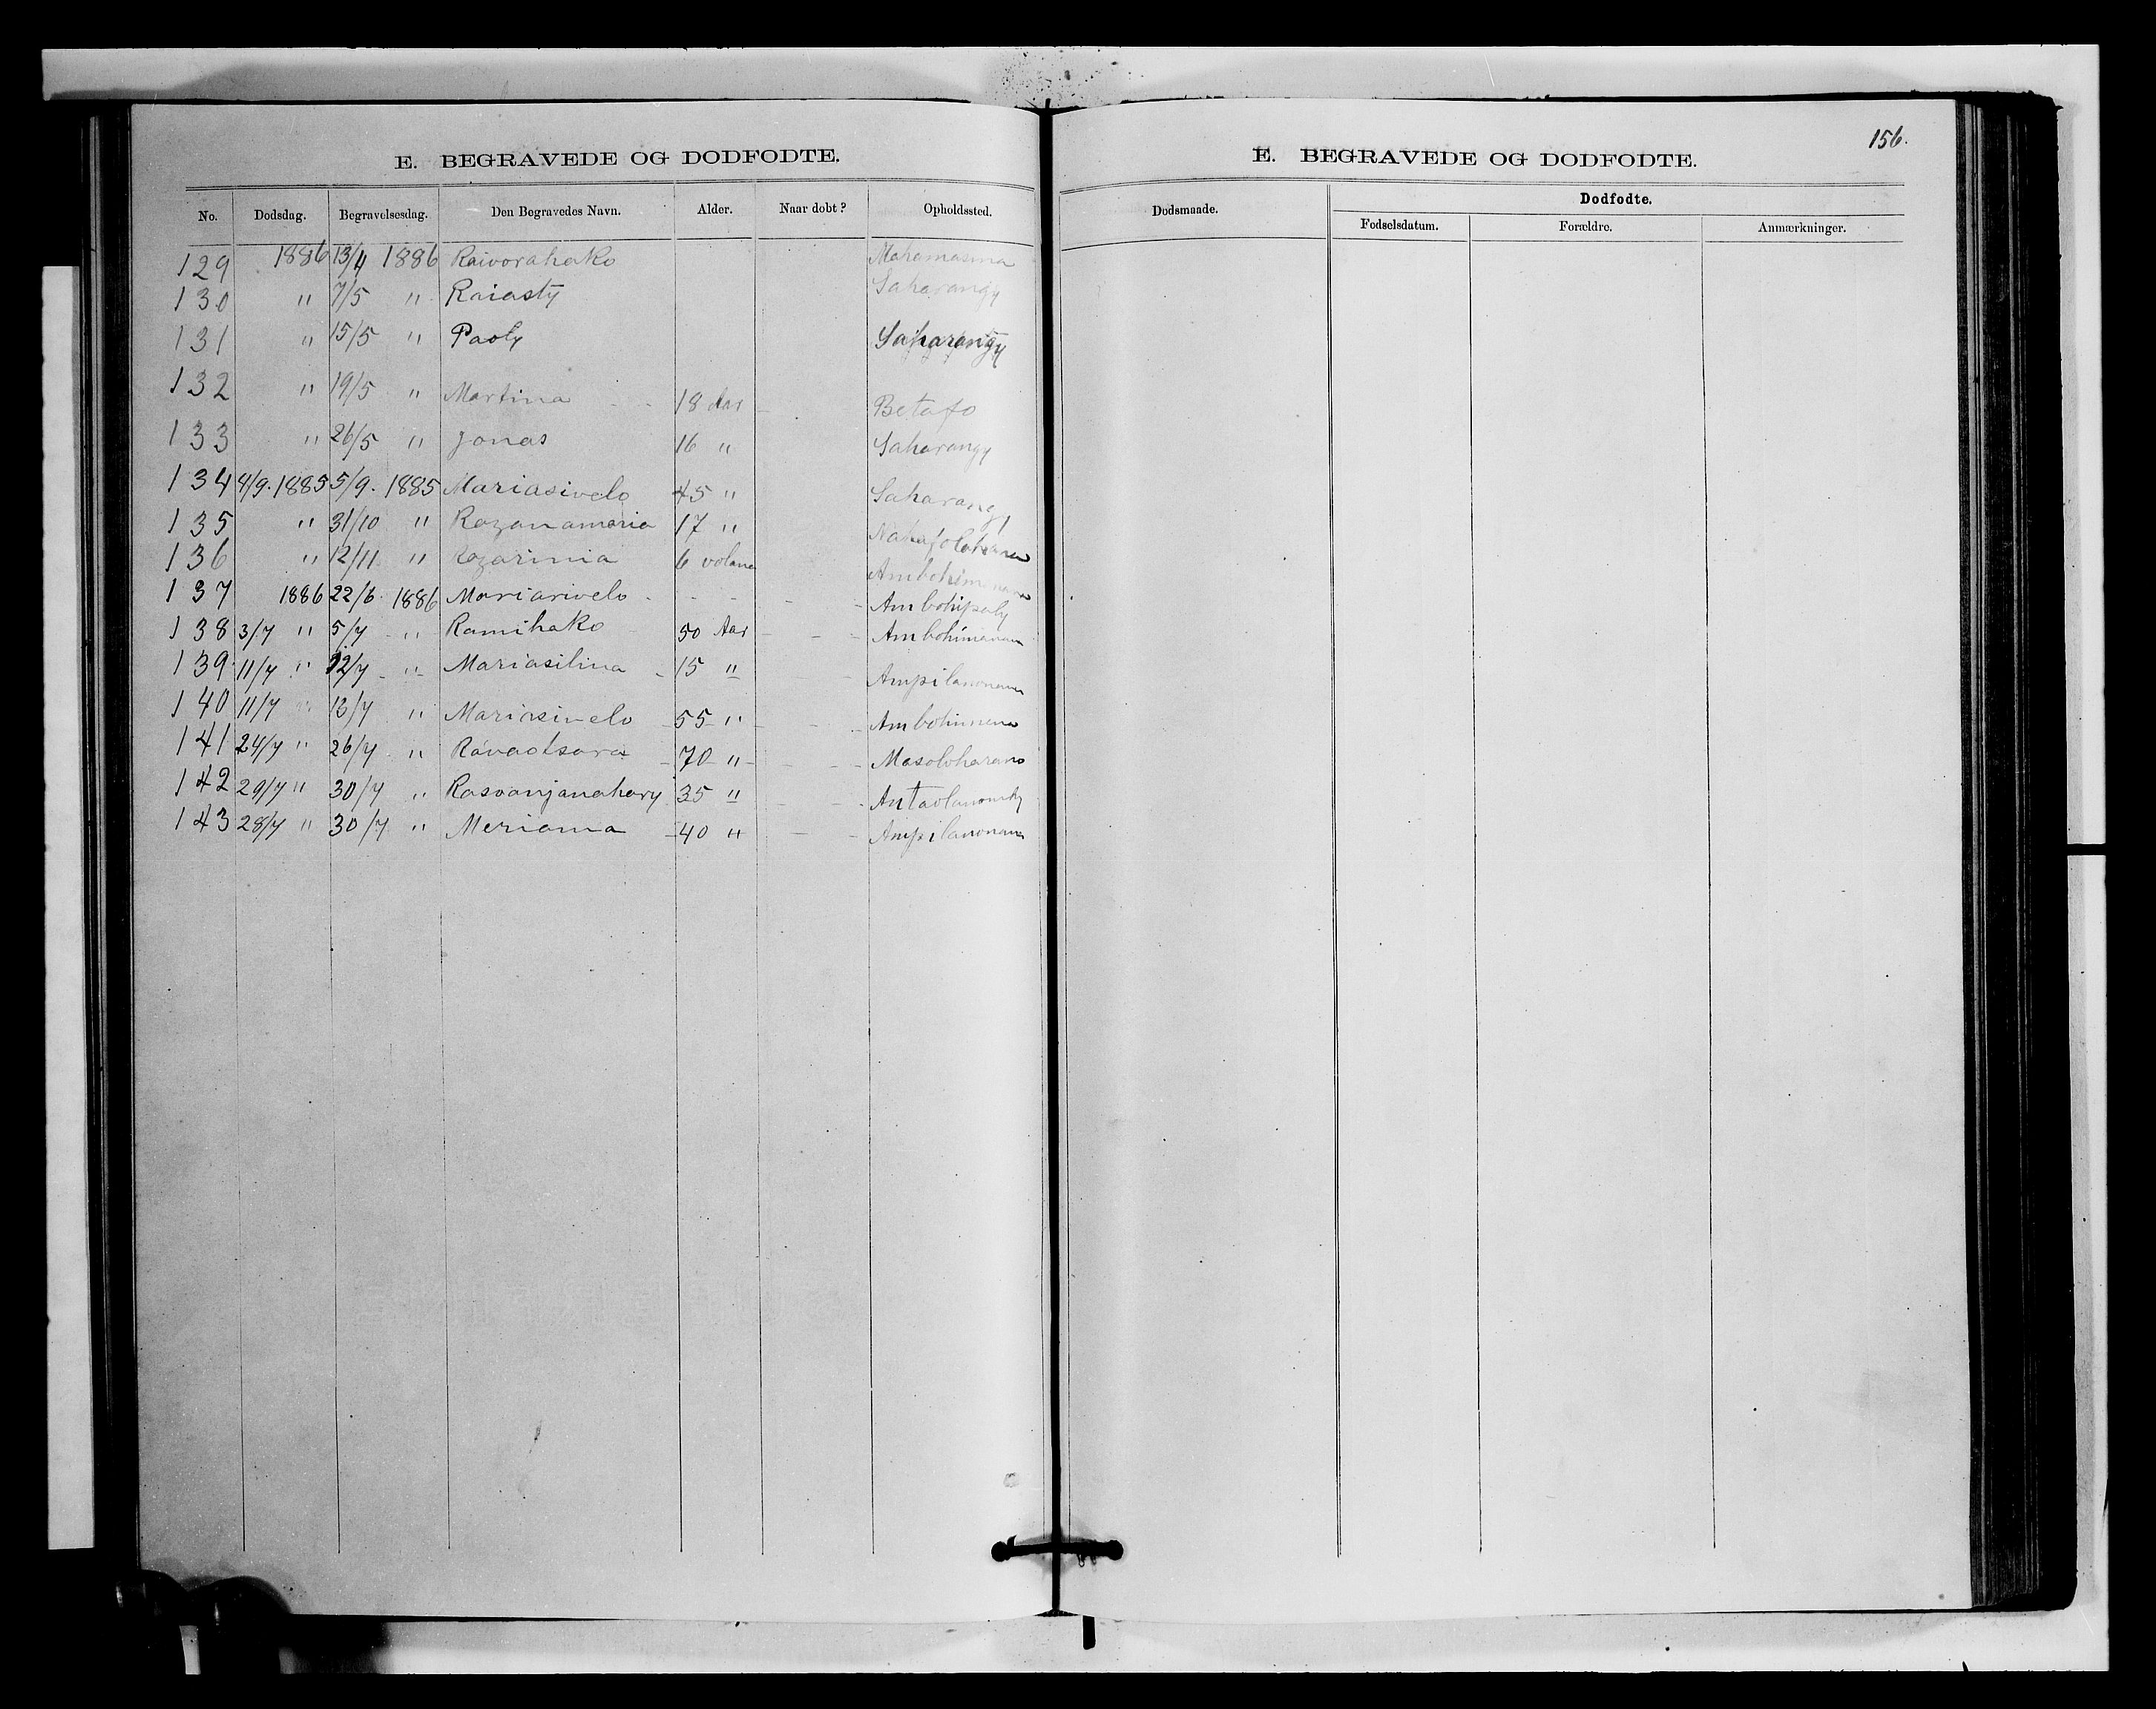 E. BEGRAVEDE OG DODFODTE.
No. Dodsdag. Begravelsesdag. Den Begravedes Navn. Alder. Naar dobt? Opholdssted.
129 1886 13/4 1886 Raivorahako Mahamasina
130 " 7/5 " Raiasty Saharangy
131 " 15/5 " Paoly Saharangy
132 " 19/5 " Martina 18 Aar Betafo
133 " 26/5 " Jonas 16 " Saharangy
134 4/9. 1885 5/9. 1885 Mariasivelo 45 " Saharangy
135 " 31/10 " Razanamaria 17 "
136 " 12/11 " Razarinia 6 volana
137 1886 22/6. 1886 Mariarivelo - - - - - Ambohipoly
138 3/7 " 5/7 " Ramihako 50 Aar - - - Ambohimanana
139 11/7 " 12/7 " Mariasilina - 15 " - - Ampilanonana
140 11/7 " 13/7 " Mariasivelo - 55 " - - - Ambohimena
141 24/7 " 26/7 " Ravaotsara - 70 " - - - Masoloharano
142 29/7 " 30/7 " Rasoanjanahary 35 " - - -
143 28/7 " 30/7. " Meriama - 40 " - - Ampilanonana
156.
E. BEGRAVEDE OG DODFODTE.
Dodsmaade. Dodfodte.
Fodselsdatum. Forældre. Anmærkninger.